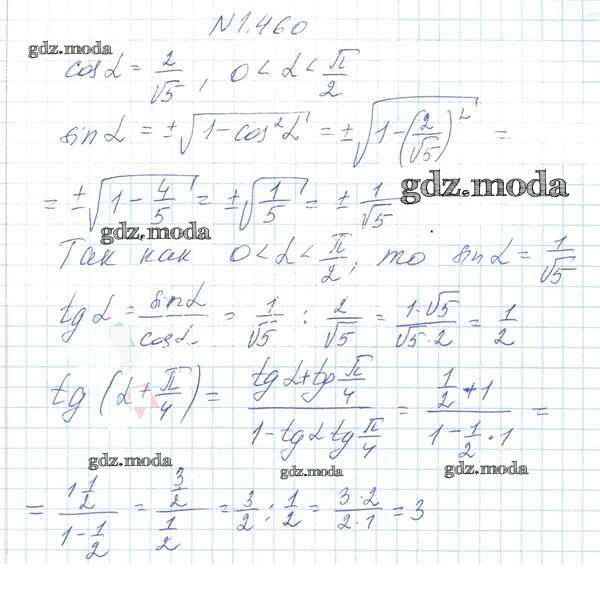 N1.460
gdz.moda
cos α = 2/√5, 0 < α < π/2
sin α = ±√(1 - cos²α) = ±√(1 - (2/√5)²) =
= ±√(1 - 4/5) = ±√(1/5) = ± 1/√5
gdz.moda
gdz.moda
Так как 0 < α < π/2, то sin α = 1/√5
tg α = sin α/cos α = 1/√5 : 2/√5 = 1·√5/√5·2 = 1/2
tg (α + π/4) = (tg α + tg π/4)/(1 - tg α tg π/4) = (1/2 + 1)/(1 - 1/2 · 1) =
gdz.moda
gdz.moda
gdz.moda
= (1 1/2)/(1 - 1/2) = (3/2)/(1/2) = 3/2 : 1/2 = 3·2/2·1 = 3